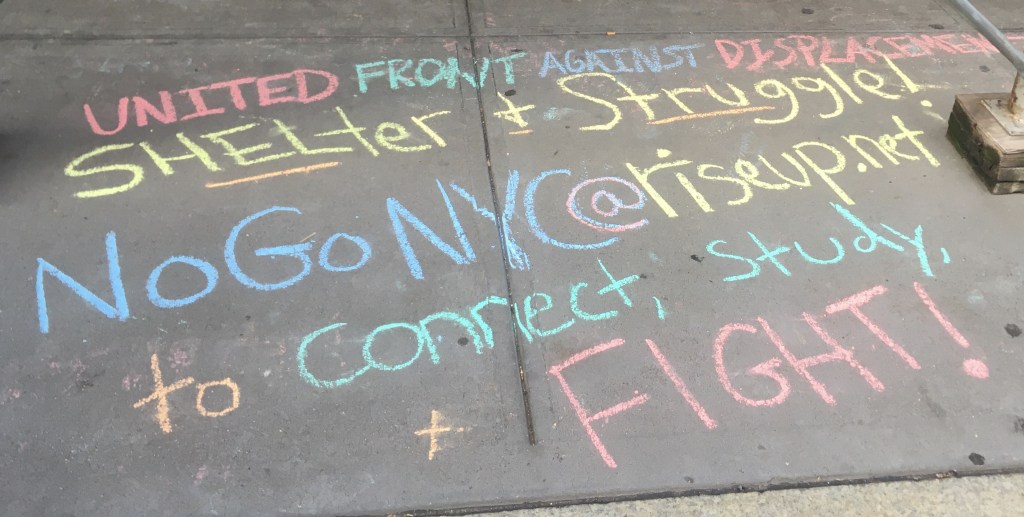 UNITED FRONT AGAINST DISPLACEMENT
SHELter + Struggle!
NoGoNYC@riseup.net
to connect, study,
+ FIGHT!